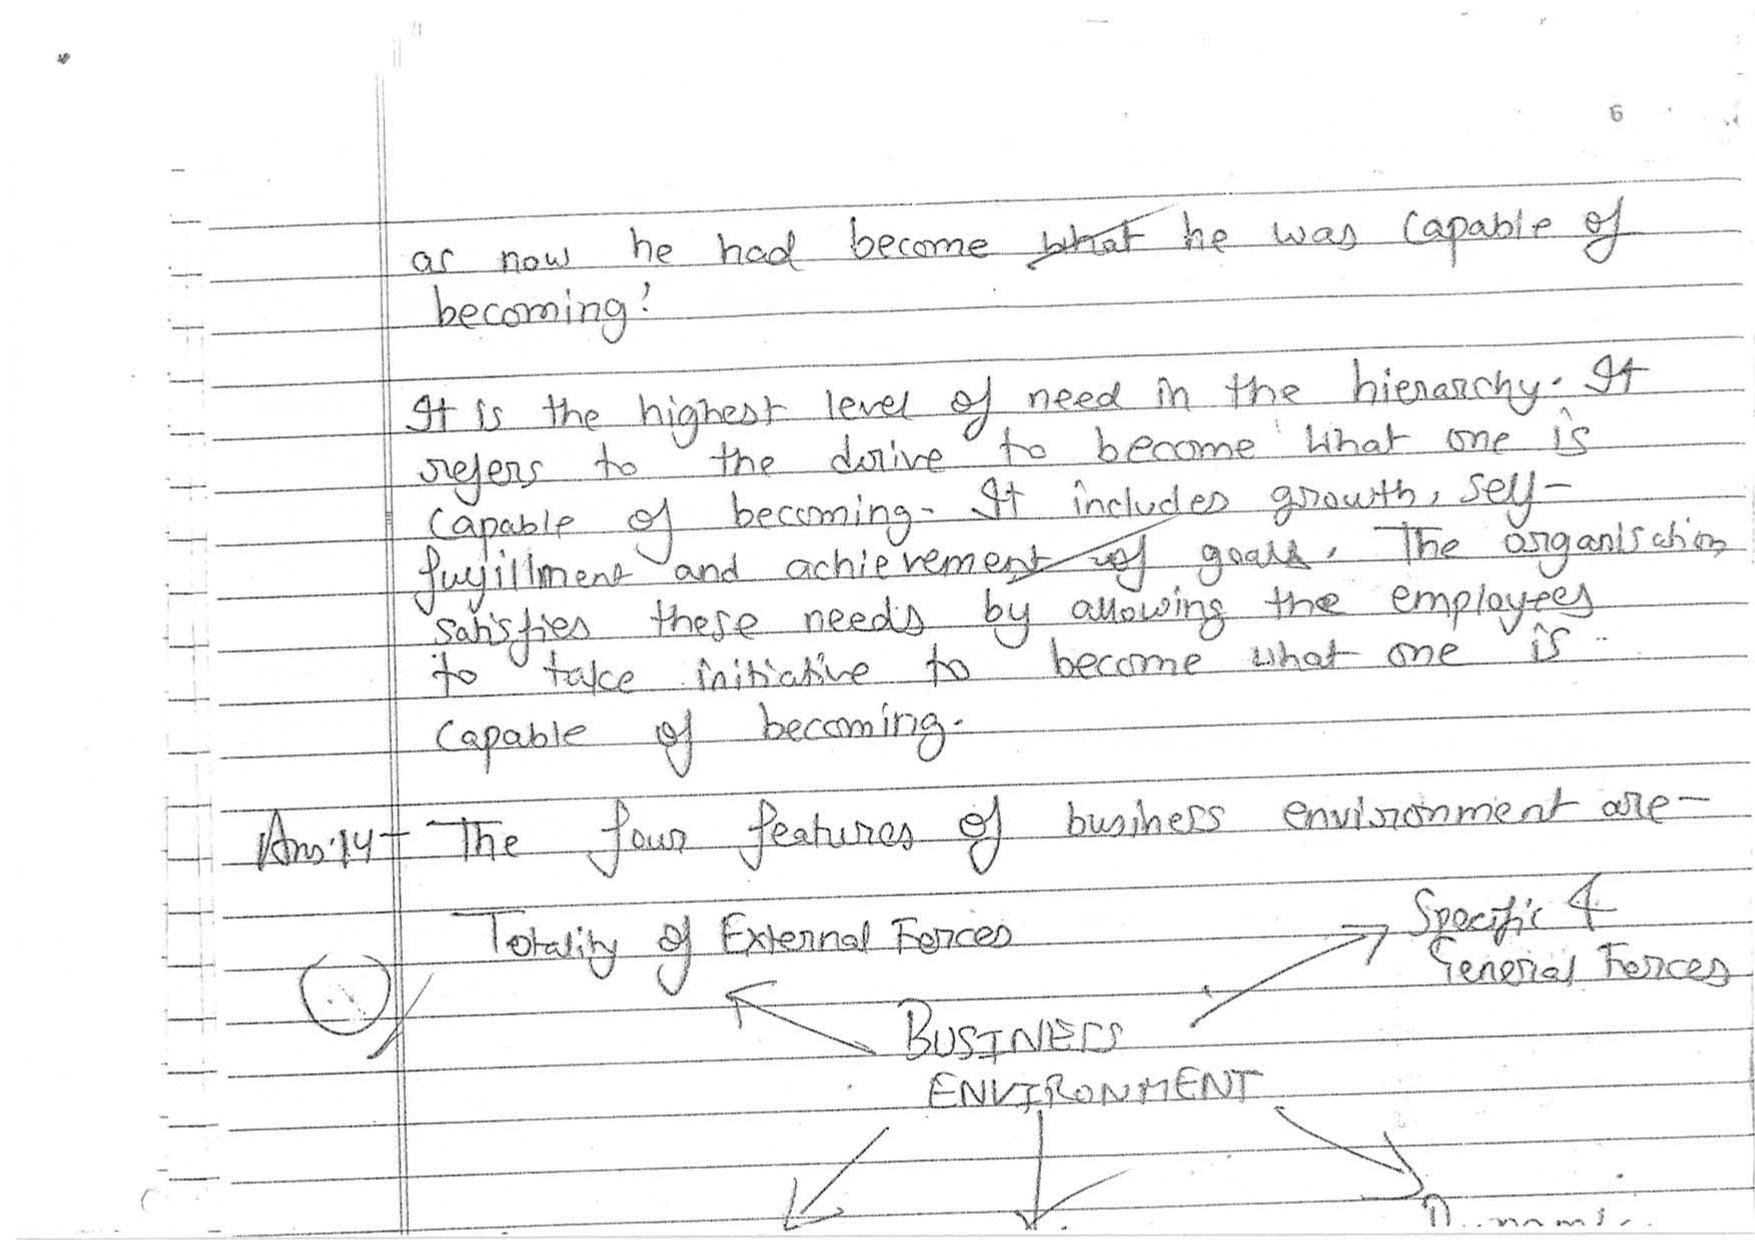 6
as now he had become what he was capable of
becoming!
It is the highest level of need in the hierarchy. It
refers to the drive to become what one is
capable of becoming. It includes growth, self-
fulfillment and achievement of goals. The organisation
satisfies these needs by allowing the employees
to take initiative to become what one is
capable of becoming.
Ans.14- The four features of business environment are-
Totality of External Forces
Specific &
General Forces
BUSINESS
ENVIRONMENT